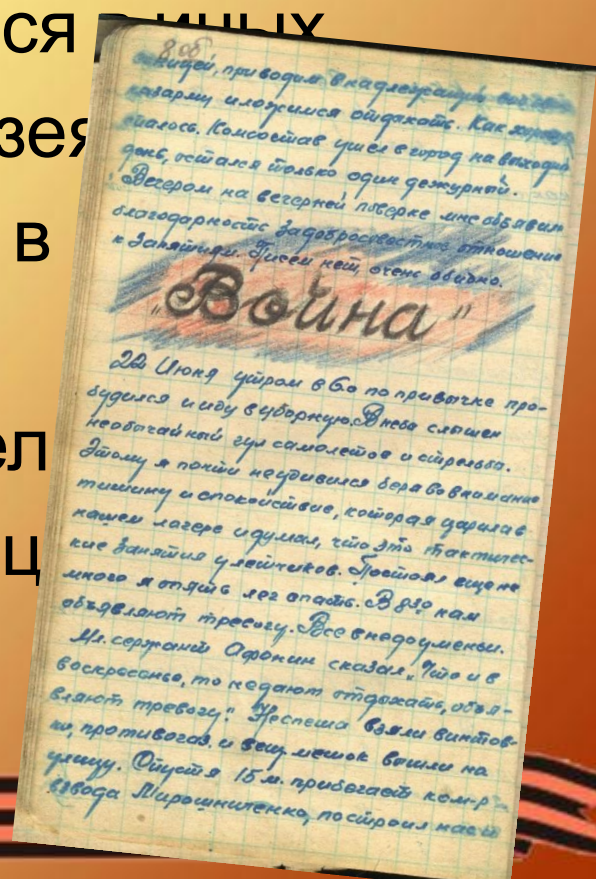 ся в иных
зея
в
ел
ц
8 об
приводим в надлежащий
казарму и ложимся отдыхать. Как
спалось. Комсостав ушел в город на выходн
день, остался только один дежурный.
Вечером на вечерней поверке мне объявили
благодарность за добросовестное отношение
к занятиям. Писем нет, очень обидно.
"Война"
22 Июня утром в 6о по привычке про-
будился и иду в уборную. В небе слышен
необычайный гул самолетов и стрельба.
Этому я почти не удивился беря во внимание
тишину и спокойствие, которая царила в
нашем лагере и думал, что это тактичес-
кие занятия у летчиков. Постоял еще не
много я опять лег спать. В нам
объявляют тревогу. Все в недоуменьи.
Мл. сержант Афонин сказал, "Что и в
воскресенье, то не дают отдыхать, объя-
вляют тревогу." Не спеша взяли винтов-
ки, противогаз и вещ. мешок вышли на
улицу. Спустя 15 м. прибегает ком-р
взвода Мирошниченко, построил нас и